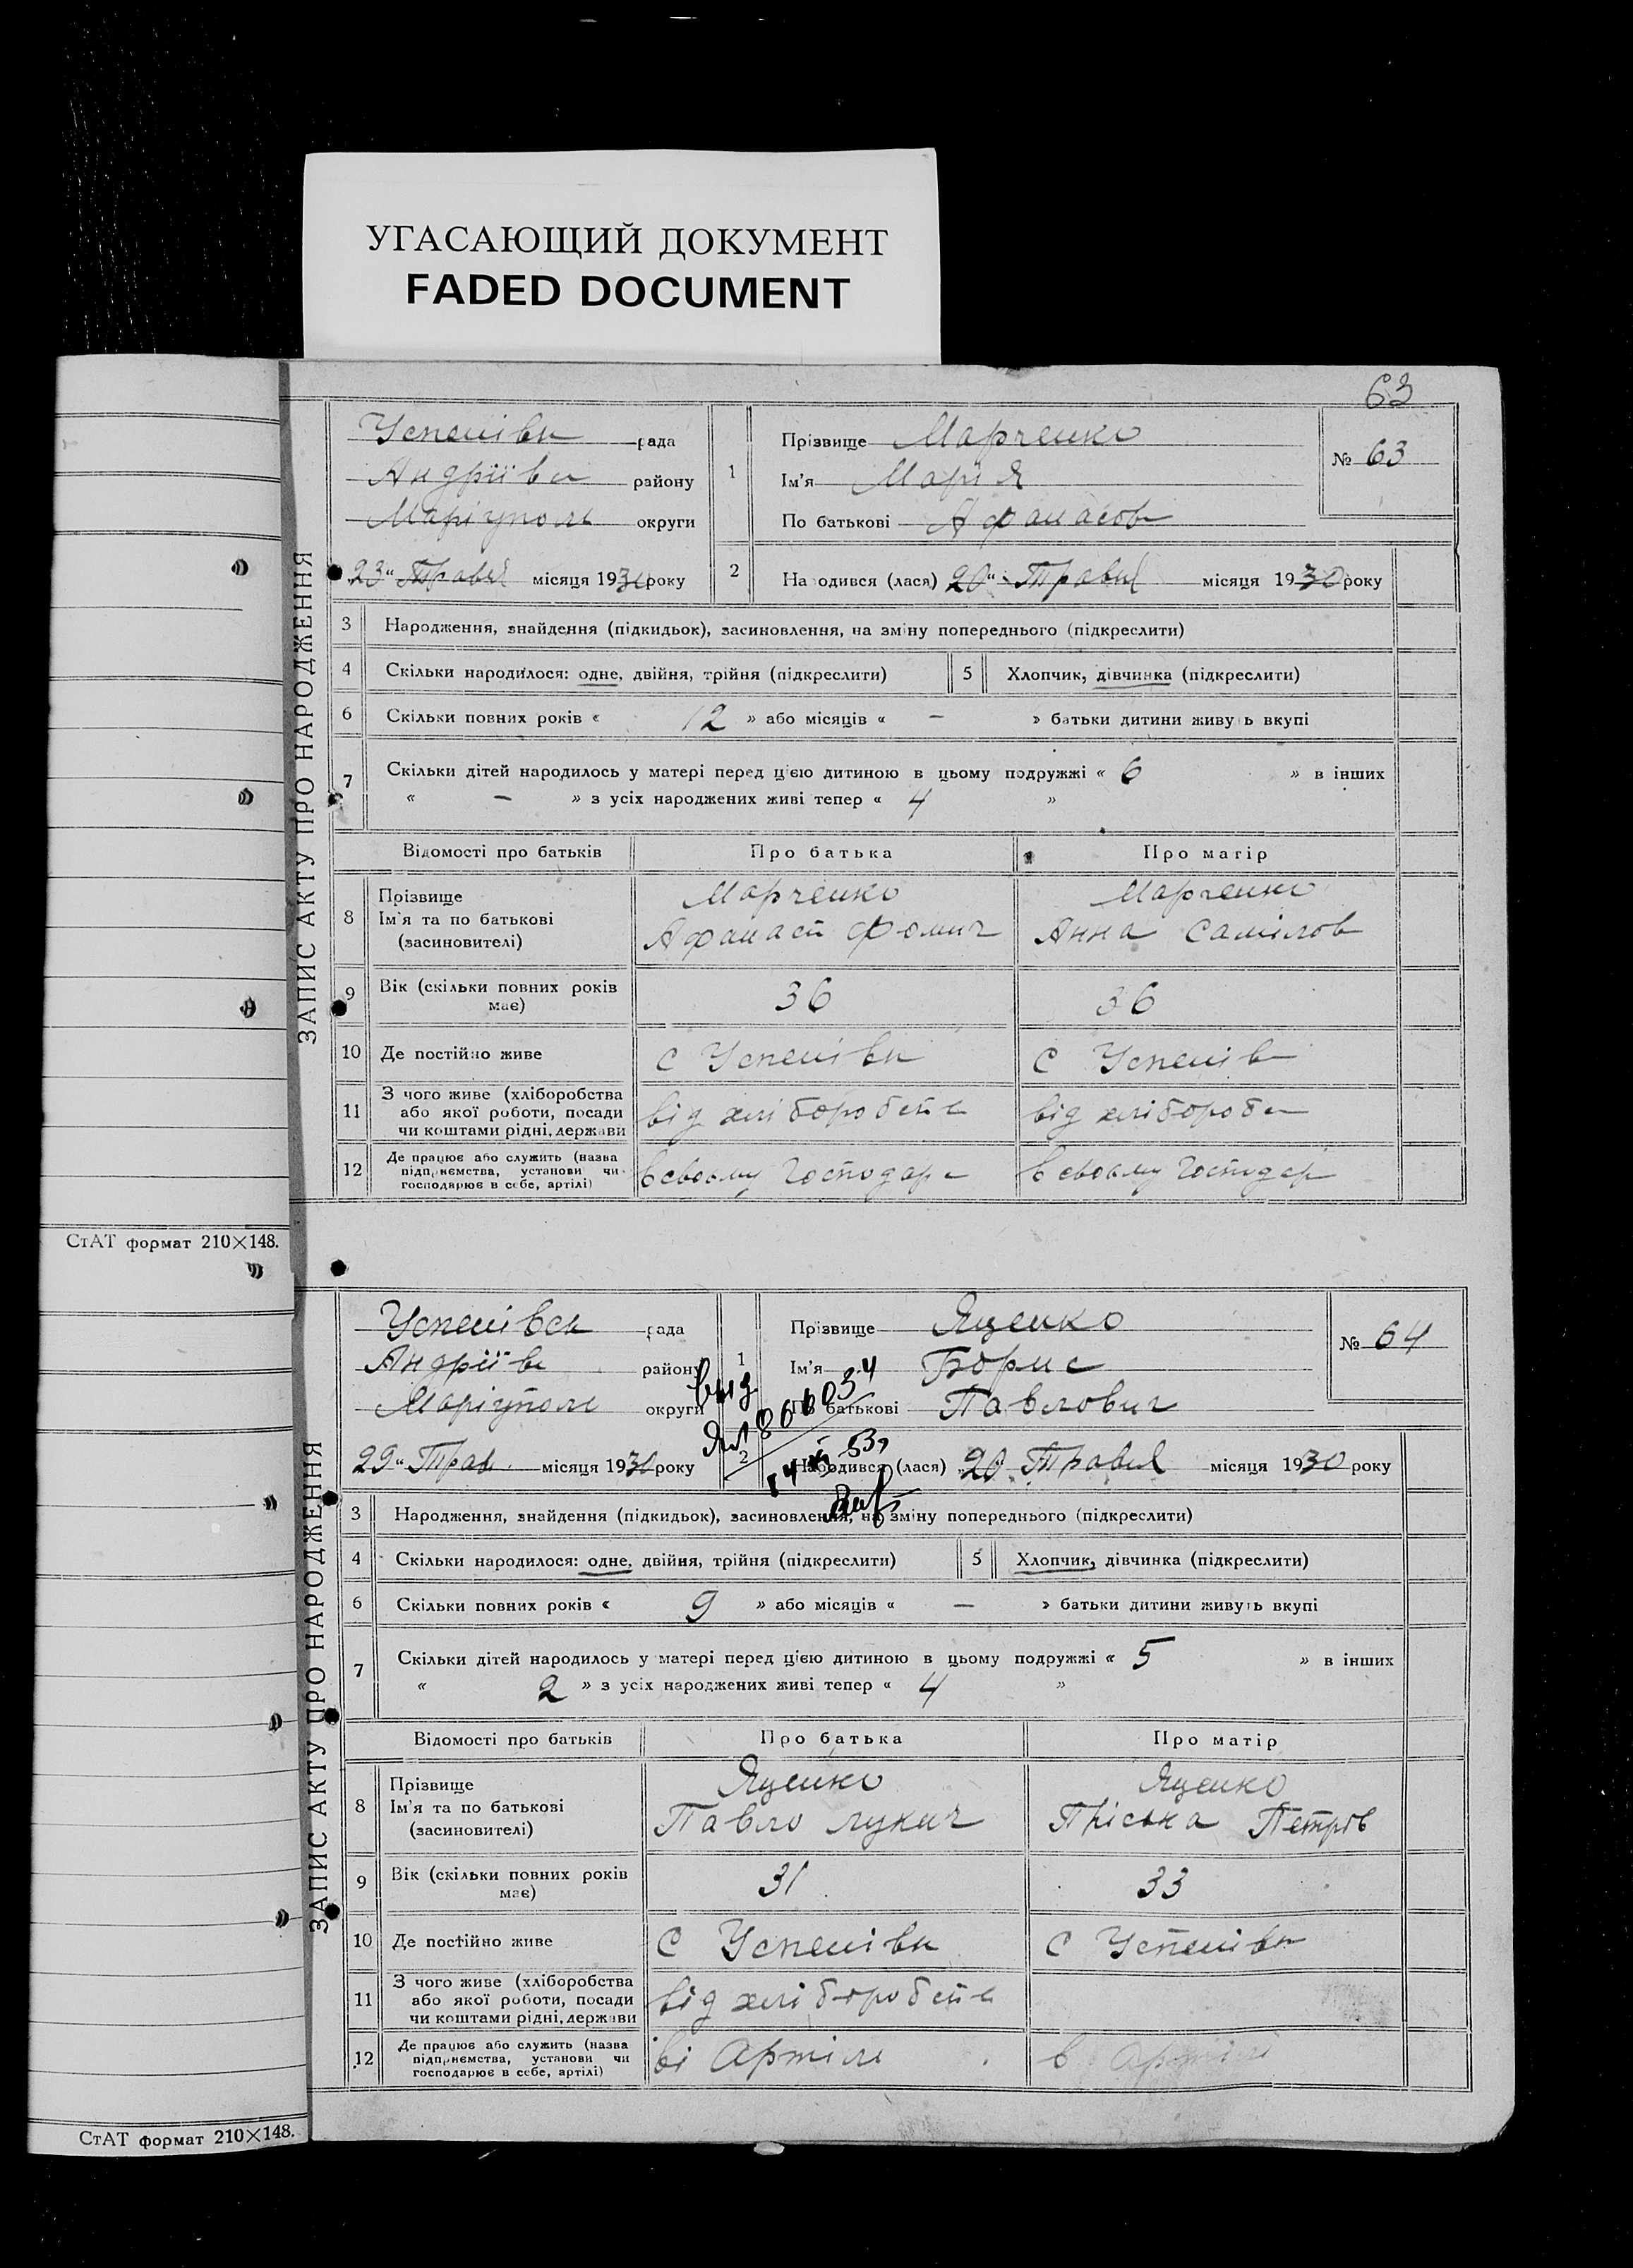 УГАСАЮЩИЙ ДОКУМЕНТ
FADED DOCUMENT
63
ЗАПИС АКТУ ПРО НАРОДЖЕННЯ
Успенівк рада
Андріївк району
Маріуполь округи
23 „ Травня місяця 1930 року
1 Прізвище Марченко
Ім'я Марія
По батькові Афанасов
№ 63
2 Народився (лася) 20 „ Травня місяця 1930 року
3 Народження, знайдення (підкидьок), засиновлення, на зміну попереднього (підкреслити)
4 Скільки народилося: одне, двійня, трійня (підкреслити) 5 Хлопчик, дівчинка (підкреслити)
6 Скільки повних років « 12 » або місяців « — » батьки дитини живуть вкупі
7 Скільки дітей народилось у матері перед цією дитиною в цьому подружжі « 6 » в інших
« — » з усіх народжених живі тепер « 4 »
Відомості про батьків Про батька Про матір
8 Прізвище Марченко Марченко
Ім'я та по батькові Афанасій Фомич Анна Самілов
(засиновителі)
9 Вік (скільки повних років 36 36
має)
10 Де постійно живе с Успенівк с Успенів
11 З чого живе (хліборобства
або якої роботи, посади від хліборобств від хлібороб
чи коштами рідні, держави
12 Де працює або служить (назва
підприємства, установи чи в своєму Господар в своєму Господар
господарює в себе, артілі)
СтАТ формат 210×148.
ЗАПИС АКТУ ПРО НАРОДЖЕННЯ
Успенівськ рада
Андріїв району
Маріуполь округи
29 „ Трав місяця 1930 року
1 Прізвище Яценко
Ім'я Борис
По батькові Павлович
№ 64
2 Народився (лася) 20 „ Травня місяця 1930 року
3 Народження, знайдення (підкидьок), засиновлення, на зміну попереднього (підкреслити)
4 Скільки народилося: одне, двійня, трійня (підкреслити) 5 Хлопчик, дівчинка (підкреслити)
6 Скільки повних років « 9 » або місяців « — » батьки дитини живуть вкупі
7 Скільки дітей народилось у матері перед цією дитиною в цьому подружжі « 5 » в інших
« 2 » з усіх народжених живі тепер « 4 »
Відомості про батьків Про батька Про матір
8 Прізвище Яценко Яценко
Ім'я та по батькові Павло Лукич Пріська Петрів
(засиновителі)
9 Вік (скільки повних років 31 33
має)
10 Де постійно живе с Успенівк с Успенівк
11 З чого живе (хліборобства
або якої роботи, посади від хліборобств
чи коштами рідні, держави
12 Де працює або служить (назва
підприємства, установи чи ві Артілі в Артілі
господарює в себе, артілі)
СтАТ формат 210×148.